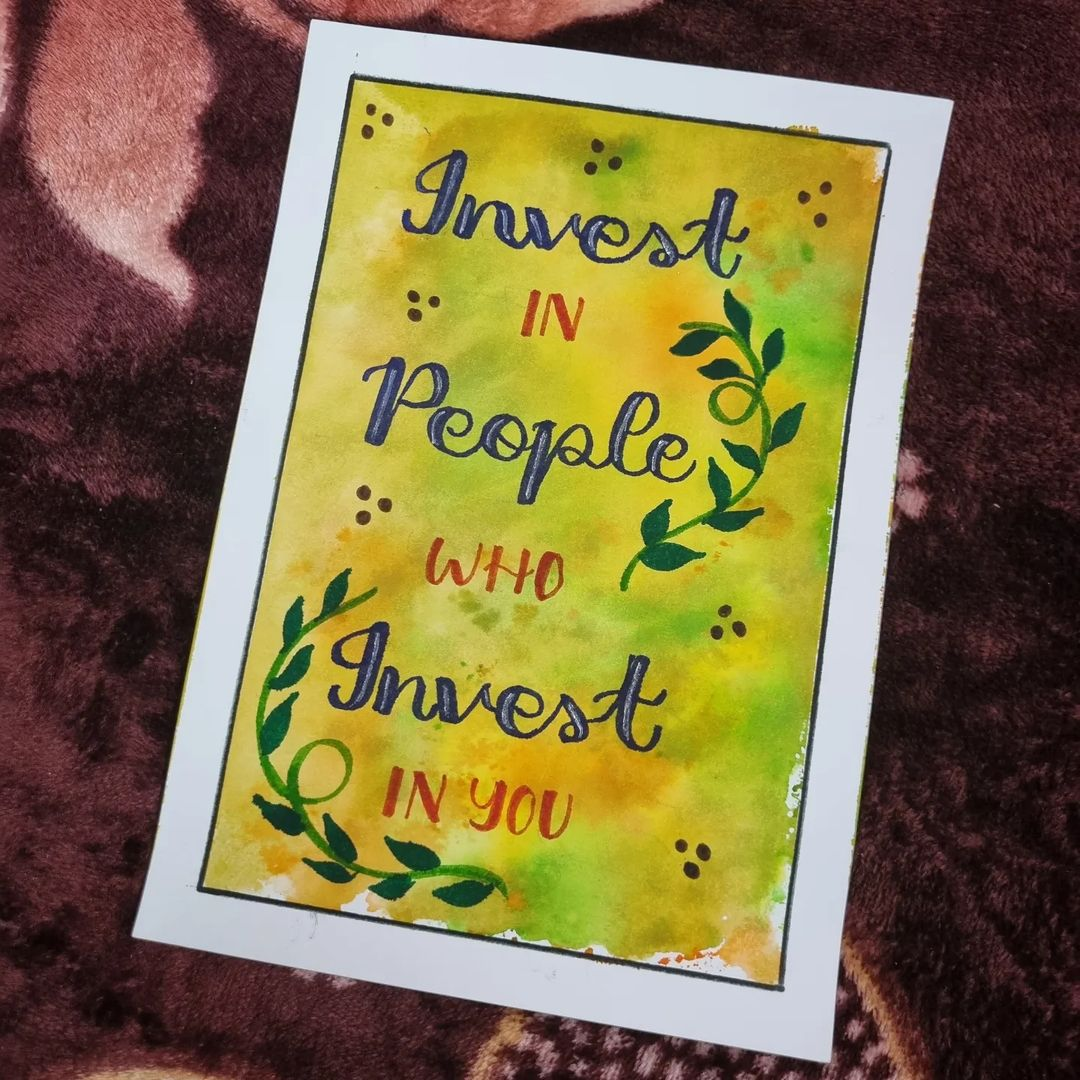 Invest
IN
People
WHO
Invest
IN YOU